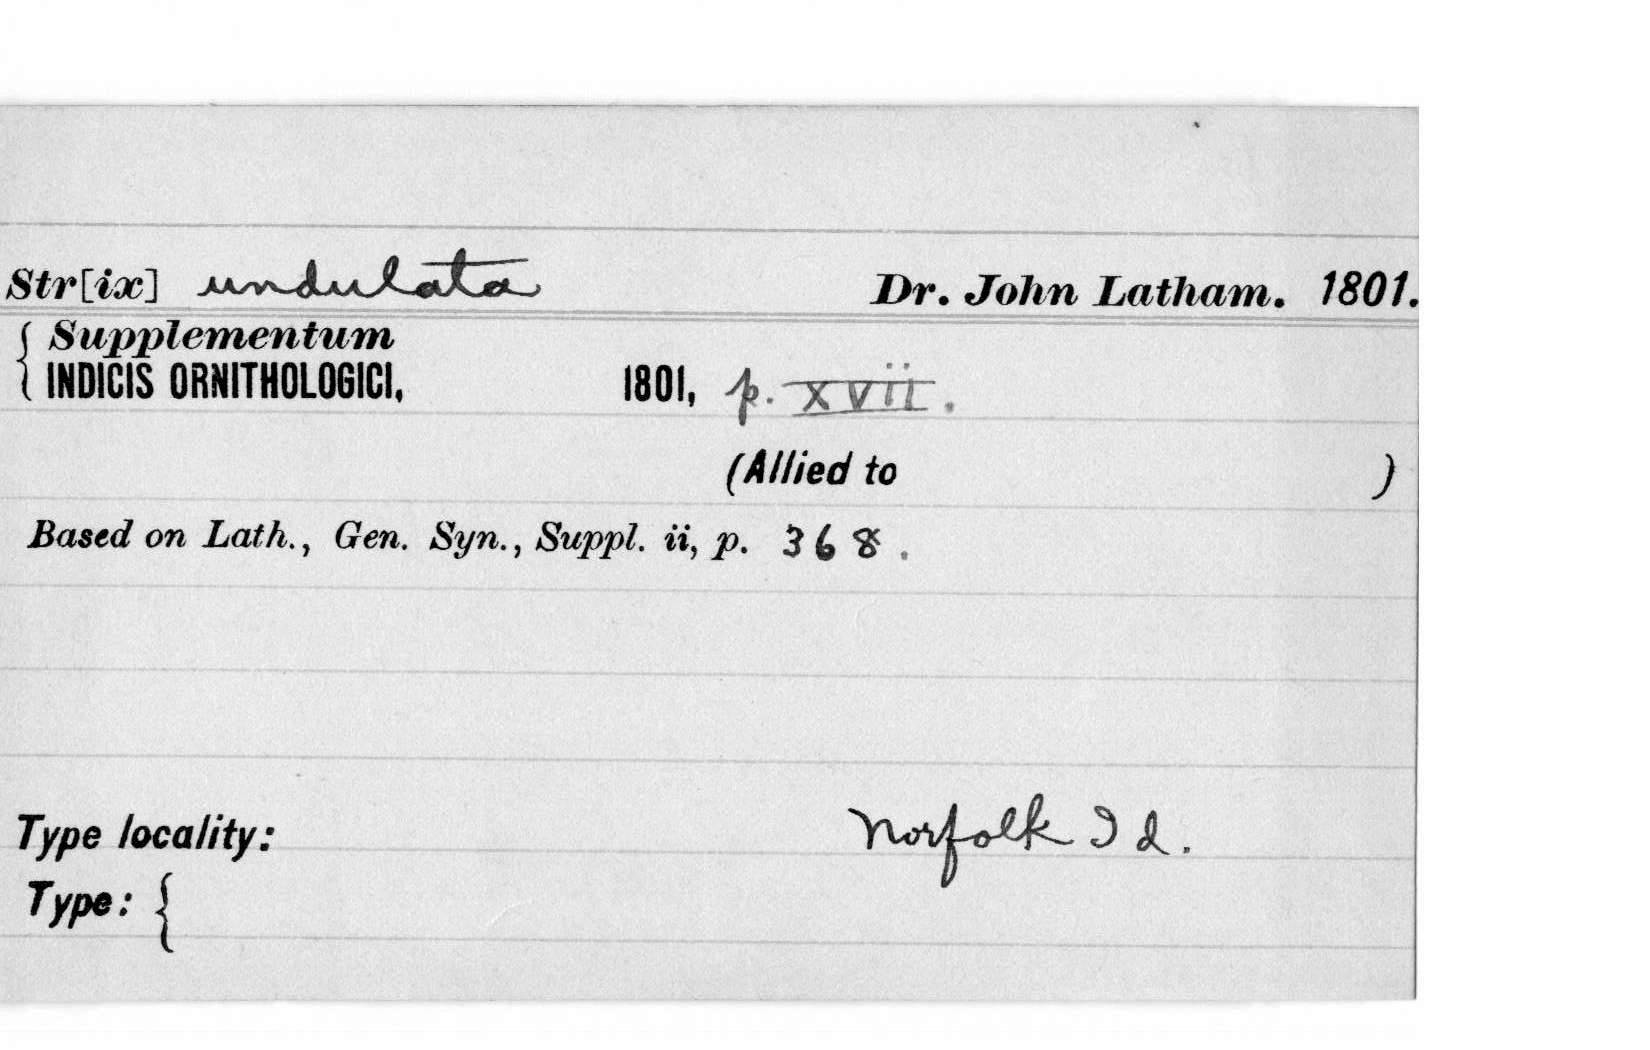 Str[ix] undulata Dr. John Latham. 1801.
{ Supplementum
INDICIS ORNITHOLOGICI, 1801, p. xvii.
(Allied to )
Based on Lath., Gen. Syn., Suppl. ii, p. 368.
Type locality: Norfolk Id.
Type: {